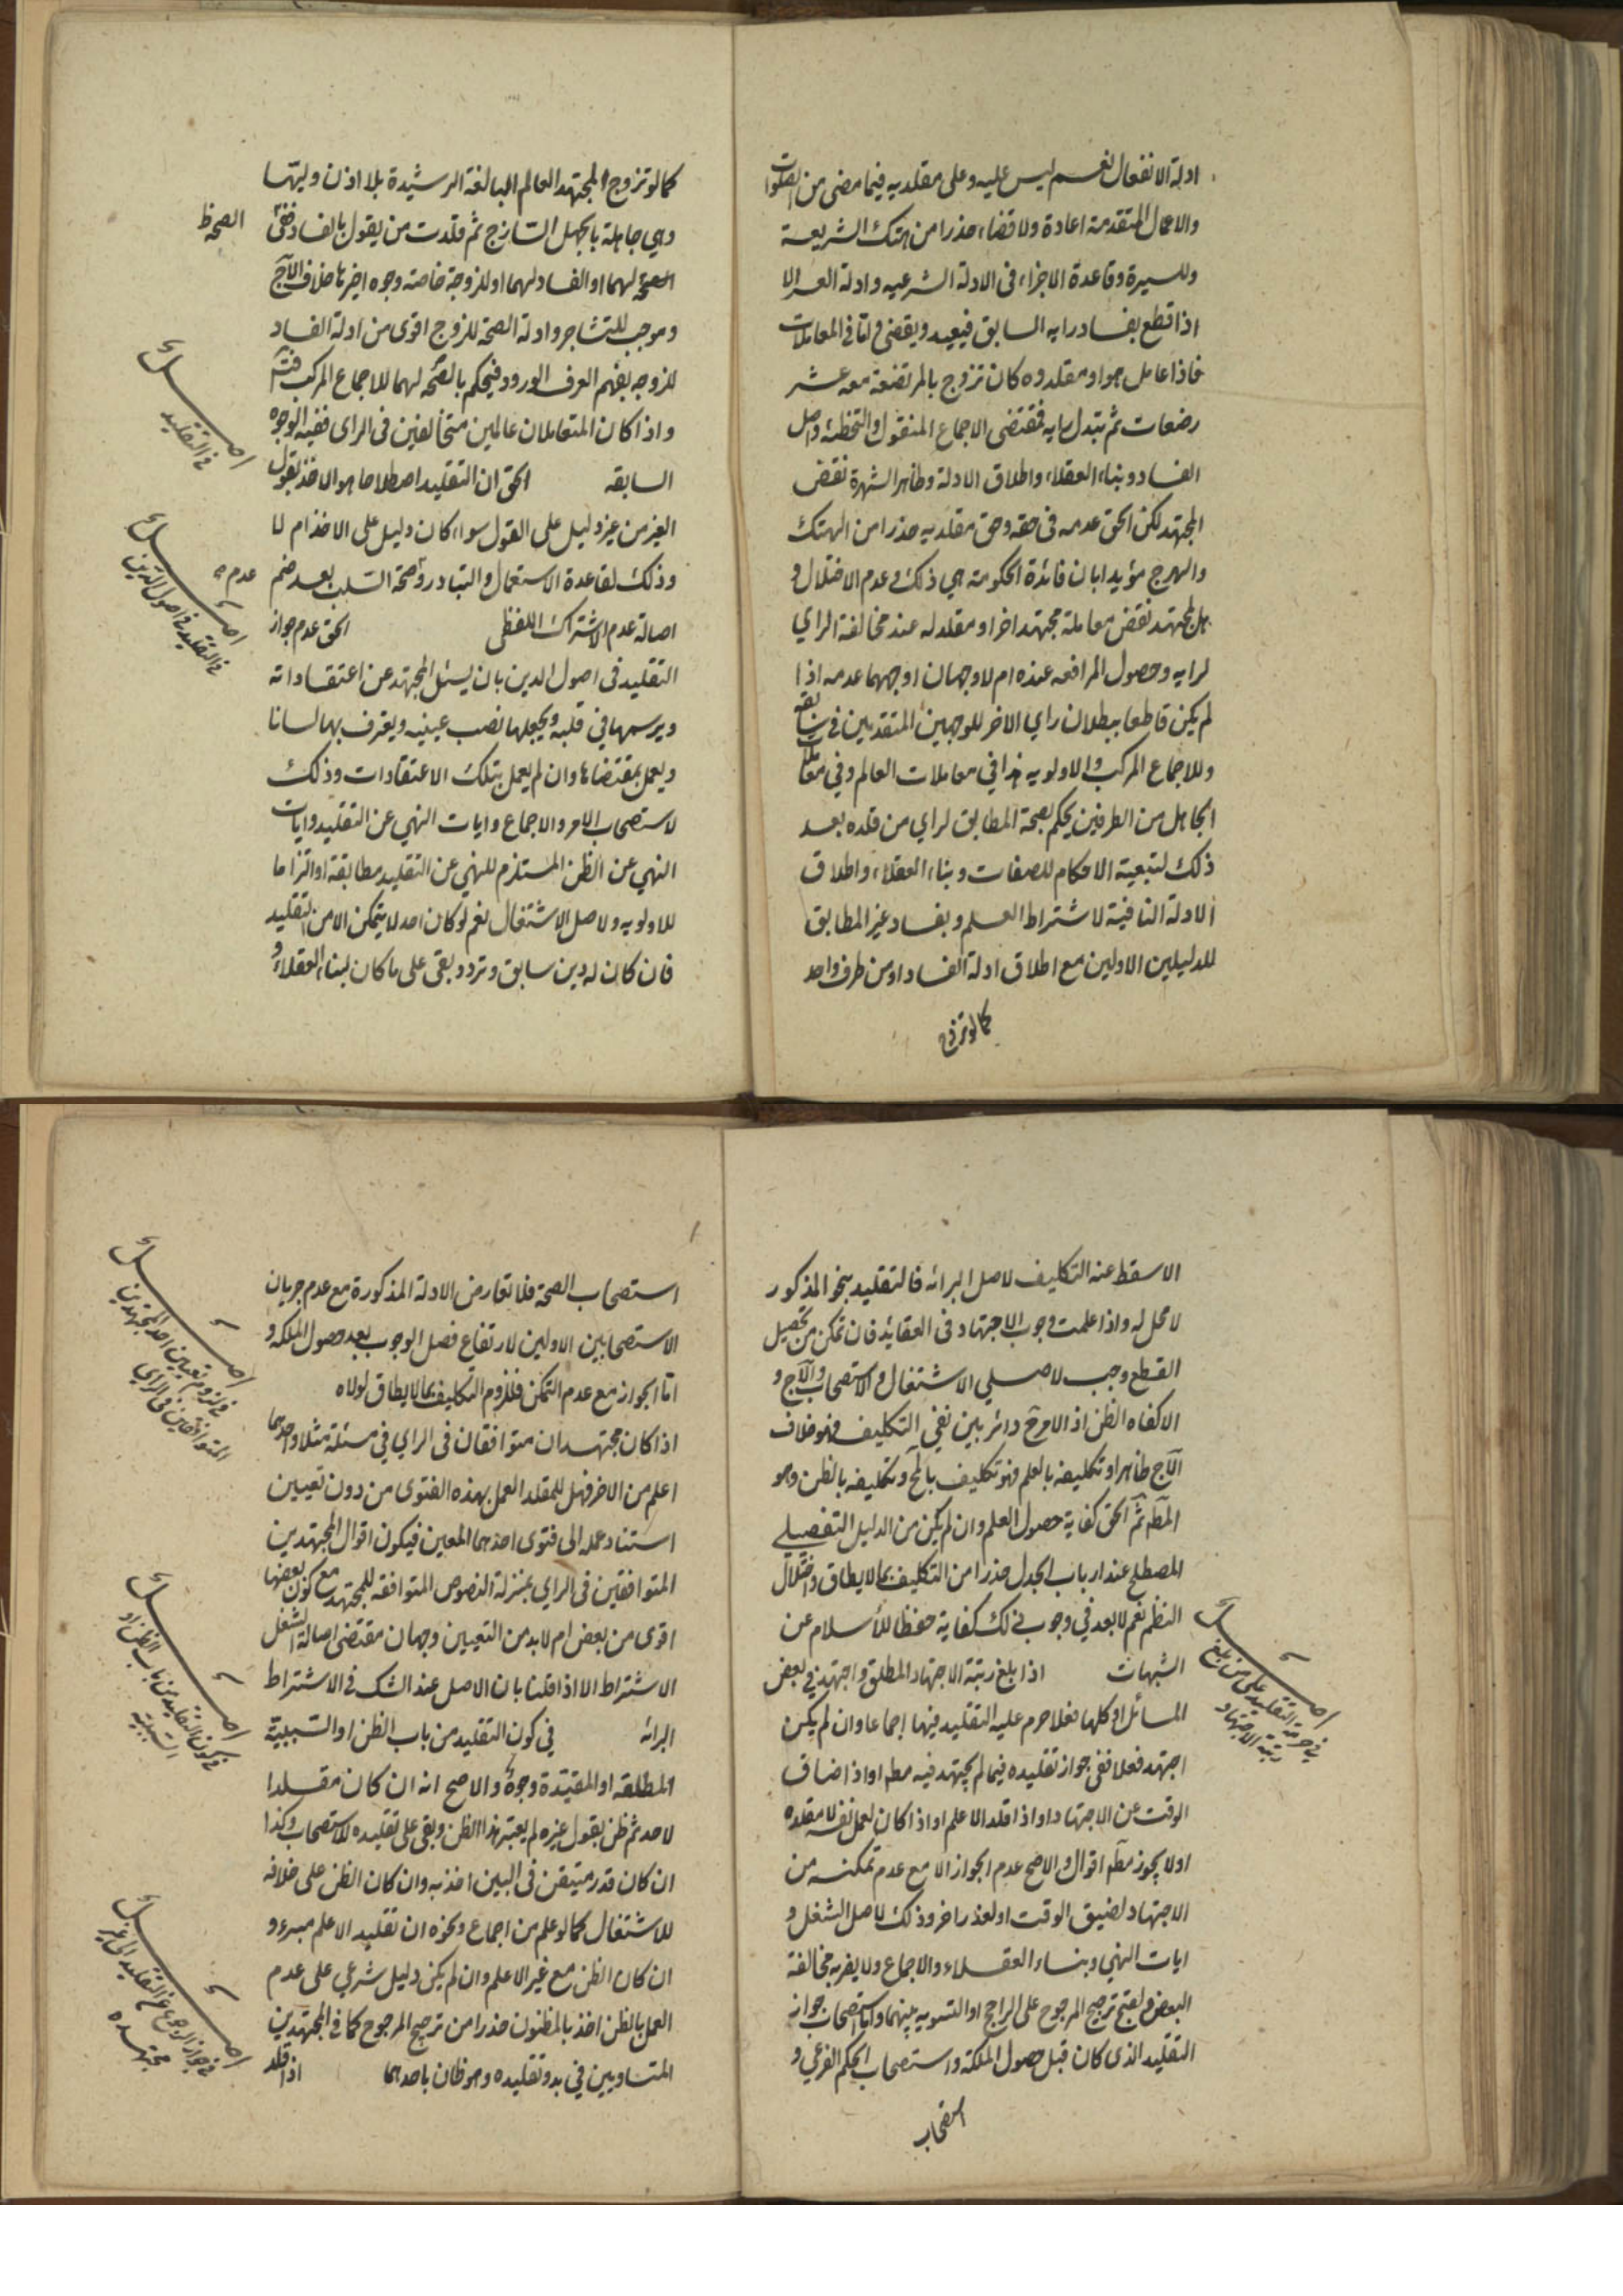 ادلة الانفعال نعم ليس عليه وعلى مقلديه فيما مضى من الصلوات
والاعمال المتقدمة اعادة ولا قضاء حذرا من هتك الشريعة
وللسيرة وقاعدة الاجزاء في الادلة الشرعيه وادلة العسر الا
اذا قطع بفساد رايه السابق فيعيد ويقضي واما في المعاملات
فاذا عامل هو او مقلدوه كان تزوج بالمرتضعة معه عشر
رضعات ثم تبدل رايه فمقتضى الاجماع المنقول والتخطئة واصل
الفساد وبناء العقلاء واطلاق الادلة وظاهر الشهرة نقض
المجتهد لكن الحق عدمه في حقه وحق مقلديه حذرا من الهتك
والهرج مؤيدا بان فائدة الحكومة هي ذلك وعدم الاختلال و
هل لمجتهد نقض معاملة مجتهد اخر او مقلد له عند مخالفة الراي
لرايه وحصول المرافعه عنده ام لا وجهان اوجهها عدمه اذا
لم يكن قاطعا ببطلان راي الاخر للوجهين المتقدمين في سابقه
وللاجماع المركب والاولويه هذا في معاملات العالم وفي معاملات
الجاهل من الطرفين يحكم بصحة المطابق لراي من قلده بعد
ذلك لتبعية الاحكام للصفات وبناء العقلاء واطلاق
الادلة النافية لاشتراط العلم وبفساد غير المطابق
للدليلين الاولين مع اطلاق ادلة الفساد او من طرف واحد
كما لو تزوج
كما لو تزوج المجتهد العالم البالغة الرشيدة بلا اذن وليها
وهي جاهلة بالجهل الساذج ثم قلدت من يقول بالفساد ففي
الصحة لهما او الفساد لهما او للزوجة خاصة وجوه اخيرها خلاف الاج
وموجب للتشاجر وادلة الصحة للزوج اقوى من ادلة الفساد
للزوجه بفهم العرف الورود فيحكم بالصحة لهما للاجماع المركب فتم
واذا كان المتعاملان عالمين متخالفين في الراي ففيه الوجوه
السابقه الحق ان التقليد اصطلاحا هو الاخذ بقول
الغير من غير دليل على القول سواء كان دليل على الاخذ ام لا
وذلك لقاعدة الاستعمال والتبادر وصحة السلب بعد ضم
اصالة عدم الاشتراك اللفظي الحق عدم جواز
التقليد في اصول الدين بان يسئل المجتهد عن اعتقاداته
ويرسمها في قلبه ويجعلها نصب عينيه ويعترف بها لسانا
ويعمل بمقتضاها وان لم يعمل بتلك الاعتقادات وذلك
لاستصحاب الامر والاجماع وايات النهي عن التقليد وايات
النهي عن الظن المستلزم للنهي عن التقليد مطابقة او التزاما
للاولويه ولاصل الاشتغال نعم لو كان احد لا يتمكن الا من التقليد
فان كان له دين سابق وتردد بقي على ما كان لبناء العقلاء و
الصحة ظ
اصل
في التقليد
عدم
اصل
في التقليد في اصول الدين
الا سقط عنه التكليف لاصل البرائه فالتقليد بنحو المذكور
لا محل له واذا علمت وجوب الاجتهاد في العقايد فان تمكن من تحصيل
القطع وجب لاصلي الاشتغال والاستصحاب والاج و
الا كفاه الظن اذ الامر ح دائر بين نفي التكليف فهو خلاف
الاج ظاهرا وتكليفه بالعلم فهو تكليف بالمح وتكليفه بالظن وهو
المط ثم الحق كفاية حصول العلم وان لم يكن من الدليل التفصيلي
المصطلح عند ارباب الجدل حذرا من التكليف بما لا يطاق واختلال
النظم نعم لا بعد في وجوب ذلك كفاية حفظا للأسلام عن
الشبهات اذا بلغ رتبة الاجتهاد المطلق واجتهد في بعض
المسائل او كلها فعلا حرم عليه التقليد فيها اجماعا وان لم يكن
اجتهد فعلا ففي جواز تقليده فيما لم يجتهد فيه مط او اذا ضاق
الوقت عن الاجتهاد او اذا قلد الاعلم او اذا كان لعمل نفسه لا مقلده
او لا يجوز مط اقوال والاصح عدم الجواز الا مع عدم تمكنه من
الاجتهاد لضيق الوقت او لعذر اخر وذلك لاصل الشغل و
ايات النهي وبناء العقلاء والاجماع ولا يضر به مخالفة
البعض ولقبح ترجيح المرجوح على الراجح او التسويه بينهما واما استصحاب جواز
التقليد الذي كان قبل حصول الملكة واستصحاب الحكم الفرعي و
استصحاب
اصل
في حرمة التقليد على من بلغ
رتبة الاجتهاد
استصحاب الصحة فلا تعارض الادلة المذكورة مع عدم جريان
الاستصحابين الاولين لارتفاع فصل الوجوب بعد حصول الملكه و
اما الجواز مع عدم التمكن فللزوم التكليف بما لا يطاق لولاه
اذا كان مجتهدان متوافقان في الراي في مسئلة مثلا واحدهما
اعلم من الاخر فهل للمقلد العمل بهذه الفتوى من دون تعيين
استناد عمله الى فتوى احدهما المعين فيكون اقوال المجتهدين
المتوافقين في الراي بمنزلة النصوص المتوافقه للمجتهد مع كون بعضها
اقوى من بعض ام لا بد من التعيين وجهان مقتضى اصالة الشغل
الاشتراط الا اذا قلنا بان الاصل عند الشك في الاشتراط
البرائه في كون التقليد من باب الظن او السببية
المطلقه او المقيدة وجوه والاصح انه ان كان مقلدا
لاحد ثم ظن بقول غيره لم يعتبر هذا الظن وبقي على تقليده للاستصحاب وكذا
ان كان قدر متيقن في البين اخذ به وان كان الظن على خلافه
للاشتغال كما لو علم من اجماع ونحوه ان تقليد الاعلم مبرء و
ان كان الظن مع غير الاعلم وان لم يكن دليل شرعي على عدم
العمل بالظن اخذ بالمظنون حذرا من ترجيح المرجوح كما في المجتهدين
المتساويين في بدو تقليده وهو ظان باحدهما اذا قلد
اصل
في لزوم تعيين احد المجتهدين
المتوافقين في الراي
اصل
في كون التقليد من باب الظن او
السببية
اصل
في جواز الرجوع عن التقليد الى غير
مجتهده